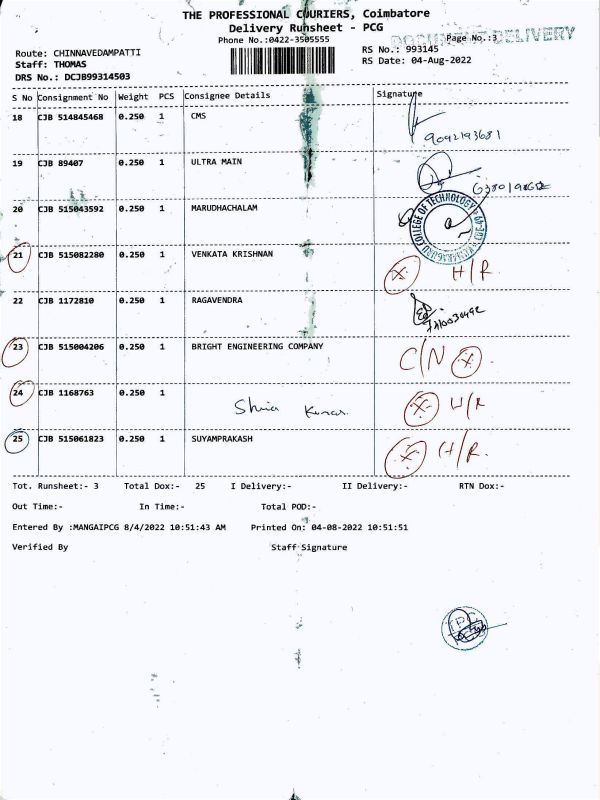 THE PROFESSIONAL COURIERS, Coimbatore
Delivery Runsheet - PCG
DOCUMENT DELIVERY
Phone No.:0422-3505555
Page No.:3
Route: CHINNAVEDAMPATTI
RS No.: 993145
Staff: THOMAS
RS Date: 04-Aug-2022
DRS No.: DCJB99314503
S No Consignment No Weight PCS Consignee Details Signature
18 CJB 514845468 0.250 1 CMS
9092193681
19 CJB 89407 0.250 1 ULTRA MAIN
20 CJB 515043592 0.250 1 MARUDHACHALAM
COLLEGE OF TECHNOLOGY
21 CJB 515082280 0.250 1 VENKATA KRISHNAN H/R
22 CJB 1172810 0.250 1 RAGAVENDRA
23 CJB 515004206 0.250 1 BRIGHT ENGINEERING COMPANY C/N
24 CJB 1168763 0.250 1 Shiva Kumar H/R
25 CJB 515061823 0.250 1 SUYAMPRAKASH H/R.
Tot. Runsheet:- 3 Total Dox:- 25 I Delivery:- II Delivery:- RTN Dox:-
Out Time:- In Time:- Total POD:-
Entered By :MANGAIPCG 8/4/2022 10:51:43 AM Printed On: 04-08-2022 10:51:51
Verified By Staff Signature